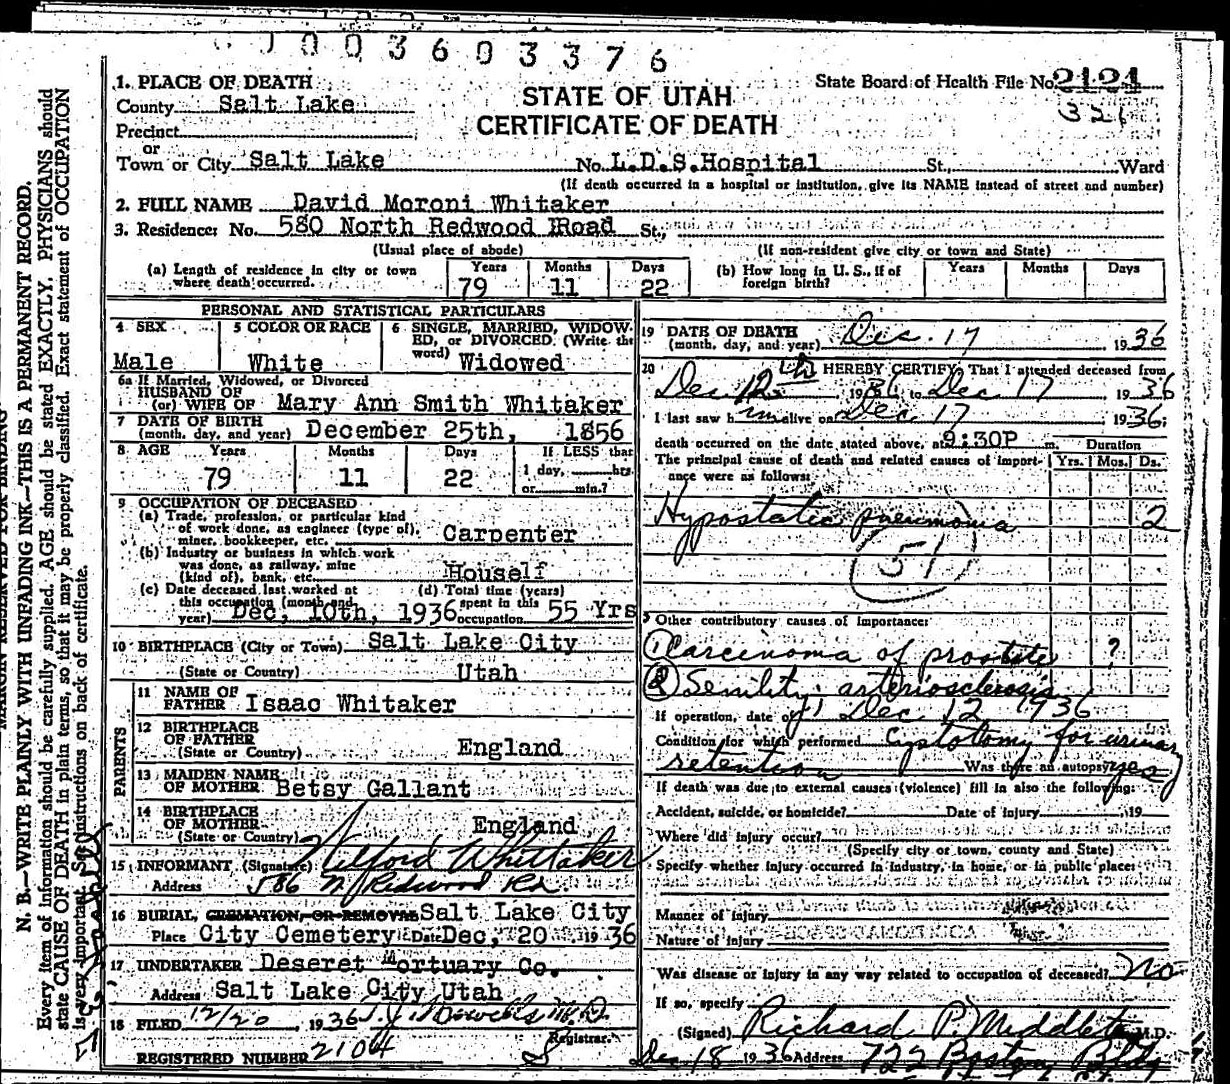 0 0 3 6 0 3 3 7 6
1. PLACE OF DEATH
County Salt Lake
Precinct
or
Town or City Salt Lake
STATE OF UTAH
CERTIFICATE OF DEATH
State Board of Health File No. 2121
321
No. L.D.S. Hospital St., Ward
(If death occurred in a hospital or institution, give its NAME instead of street and number)
2. FULL NAME David Moroni Whitaker
3. Residence: No. 580 North Redwood Road St.,
(Usual place of abode) (If non-resident give city or town and State)
(a) Length of residence in city or town where death occurred. Years 79 Months 11 Days 22
(b) How long in U. S., if of foreign birth? Years Months Days
PERSONAL AND STATISTICAL PARTICULARS
4 SEX Male
5 COLOR OR RACE White
6 SINGLE, MARRIED, WIDOWED, or DIVORCED. (Write the word) Widowed
6a If Married, Widowed, or Divorced
HUSBAND OF
(or) WIFE OF Mary Ann Smith Whitaker
7 DATE OF BIRTH
(month, day, and year) December 25th, 1856
8 AGE Years 79 Months 11 Days 22 If LESS than 1 day, hrs. or min.?
9 OCCUPATION OF DECEASED
(a) Trade, profession, or particular kind
of work done, as engineer (type of),
miner, bookkeeper, etc. Carpenter
(b) Industry or business in which work
was done, as railway, mine
(kind of), bank, etc. Houself
(c) Date deceased last worked at
this occupation (month and
year) Dec, 10th, 1936
(d) Total time (years)
spent in this
occupation. 55 Yrs
10 BIRTHPLACE (City or Town) Salt Lake City
(State or Country) Utah
PARENTS
11 NAME OF
FATHER Isaac Whitaker
12 BIRTHPLACE
OF FATHER
(State or Country) England
13 MAIDEN NAME
OF MOTHER Betsy Gallant
14 BIRTHPLACE
OF MOTHER
(State or Country) England
15 INFORMANT (Signature) Wilford Whittaker
Address 586 N Redwood Rd
16 BURIAL, CREMATION, OR REMOVAL Salt Lake City
Place City Cemetery Date Dec, 20 1936
17 UNDERTAKER Deseret Mortuary Co.
Address Salt Lake City Utah
18 FILED 12/20, 1936 M.D.
Registrar.
REGISTERED NUMBER 2104
19 DATE OF DEATH
(month, day, and year) Dec. 17, 1936
20 I HEREBY CERTIFY, That I attended deceased from
Dec 12th 1936 to Dec 17 1936
I last saw him alive on Dec 17 1936;
death occurred on the date stated above, at 9:30P m.
The principal cause of death and related causes of importance were as follows:
Duration
Yrs. Mos. Ds.
Hypostatic pneumonia 2
51
Other contributory causes of importance:
1 Carcinoma of prostate ?
2 Senility, arteriosclerosis
If operation, date of Dec 12 1936
Condition for which performed Cystotomy for urinary
retention Was there an autopsy? yes
If death was due to external causes (violence) fill in also the following:
Accident, suicide, or homicide? Date of injury , 19
Where did injury occur?
(Specify city or town, county and State)
Specify whether injury occurred in industry, in home, or in public place:
Manner of injury
Nature of injury
Was disease or injury in any way related to occupation of deceased? No
If so, specify
(Signed) Richard P. Middleton M.D.
Dec 18 1936 Address 722 Boston Bldg
N. B.—WRITE PLAINLY WITH UNFADING INK—THIS IS A PERMANENT RECORD.
Every item of information should be carefully supplied. AGE should be stated EXACTLY. PHYSICIANS should
state CAUSE OF DEATH in plain terms, so that it may be properly classified. Exact statement of OCCUPATION
is very important. See instructions on back of certificate.